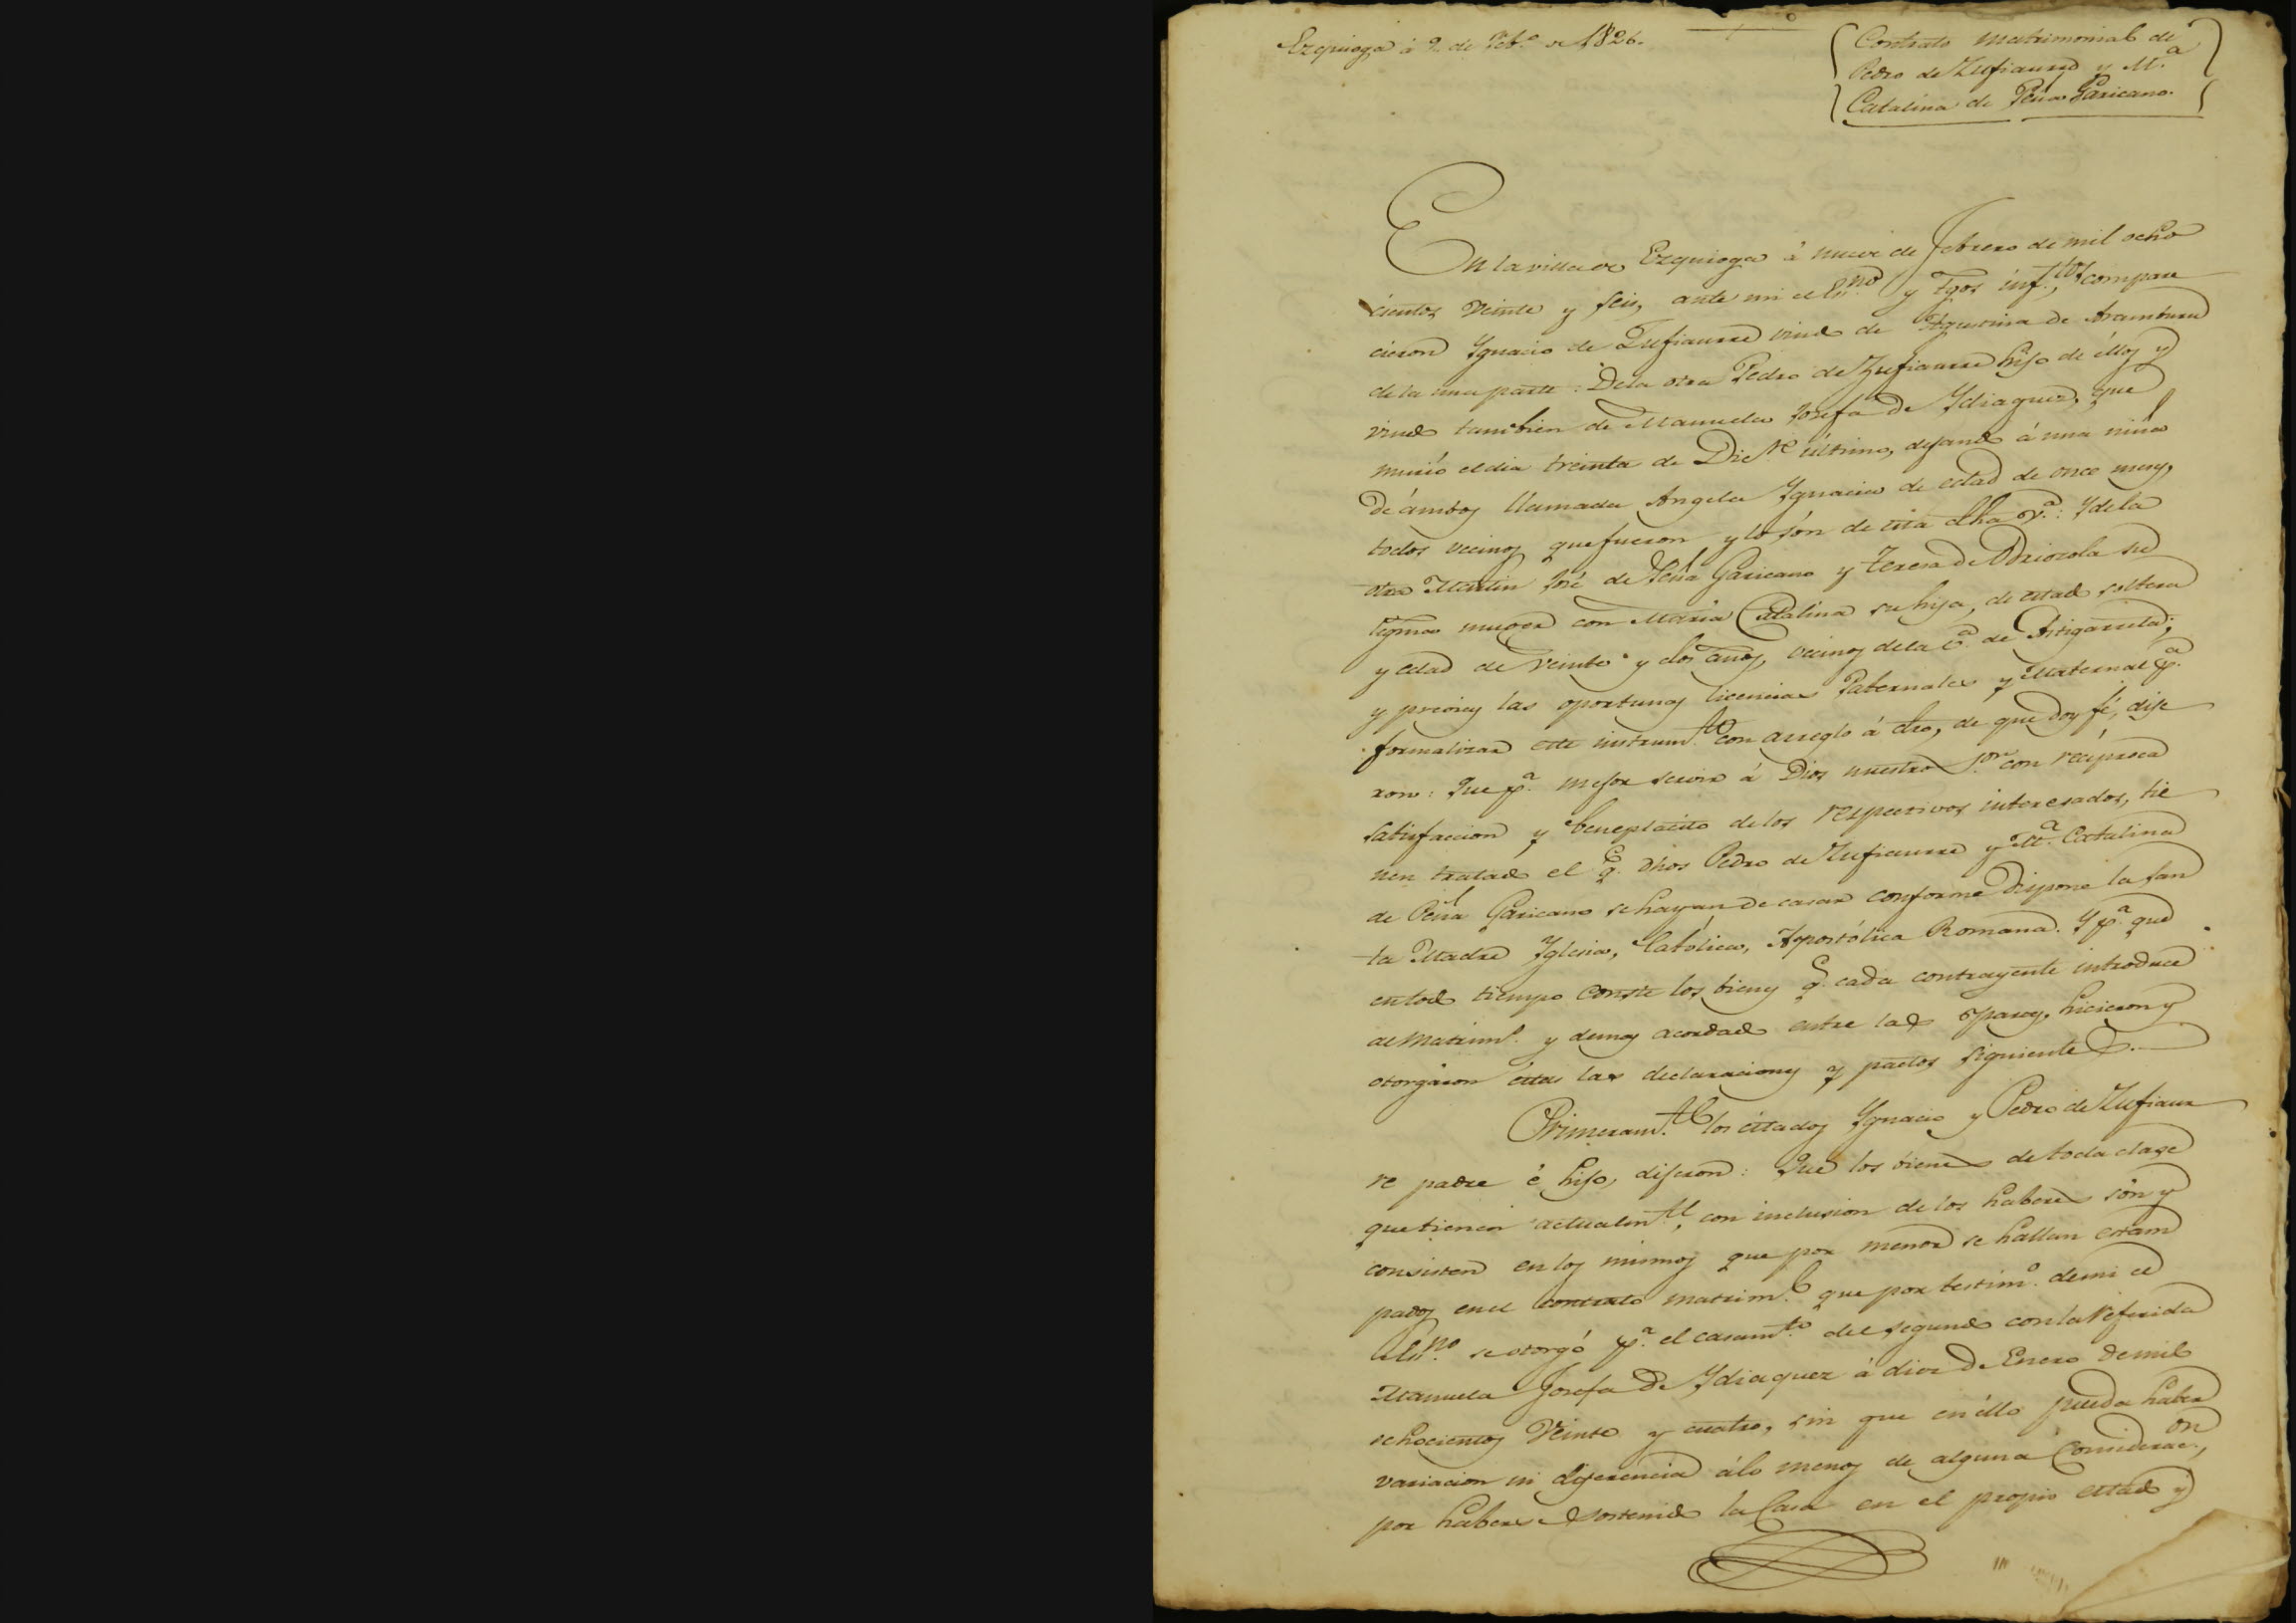 Ezquioga á 9 de Feb.º de 1826.
Contrato Matrimonial de
Pedro de Zufiaurre y M.ª
Catalina de Peña Garicano.
En la villa de Ezquioga á nueve de Febrero de mil ocho
cientos veinte y seis, ante mi el Ess.no y tgos inf.tos compare
cieron Ygnacio de Zufiaurre viudo de Agustina de Aramburu
de la una parte: De la otra Pedro de Zufiaurre hijo de éllos y
viudo tambien de Manuela Josefa de Ydiaquez, que
murió el dia treinta de Dic.re último, dejando á una niña
de ámbos llamada Angela Ygnacia de edad de once meses,
todos vecinos que fueron y lo són de esta dha v.ª: Y de la
otra Martin José de Peña Garicano y Teresa de Odriozola su
legma muger con Maria Catalina su hija, de estado soltera
y edad de veinte y dos años, vecinos de la v.ª de Astigarreta;
y previas las oportunas licencias Paternales y Maternal p.ª
formalizar este instrum.to con arreglo á dro, de que doy fé, dije
ron: Que p.ª mejor servir á Dios nuestro S.or con reciproca
satisfaccion y beneplacito de los respectivos interesados, tie
nen tratado el q. dhos Pedro de Zufiaurre y M.ª Catalina
de Peña Garicano se hayan de casar conforme dispone la san
ta Madre Yglesia, Católica, Apostólica Romana. Y p.ª que
en todo tiempo conste los bienes q. cada contrayente introduce
al Matrim.º y demas acordado entre las partes, hicieron y
otorgáron éstas las declaraciones y pactos siguientes.
Primeram.te los citados Ygnacio y Pedro de Zufiaur
re padre é hijo, dijeron: Que los bienes de toda clase
que tienen actualm.te, con inclusion de los haberes són y
consisten en los mismos que por menor se hallan estam
pados en el contrato matrim.l que por testim.º de mi el
Ess.no se otorgó p.ª el casam.to del segundo con la referida
Manuela Josefa de Ydiaquez á diez de Enero de mil
ochocientos veinte y cuatro, sin que en éllo pueda haber
variacion ni diferencia á lo menos de alguna considerac.on,
por haberse sostenido la Casa en el propio estado y